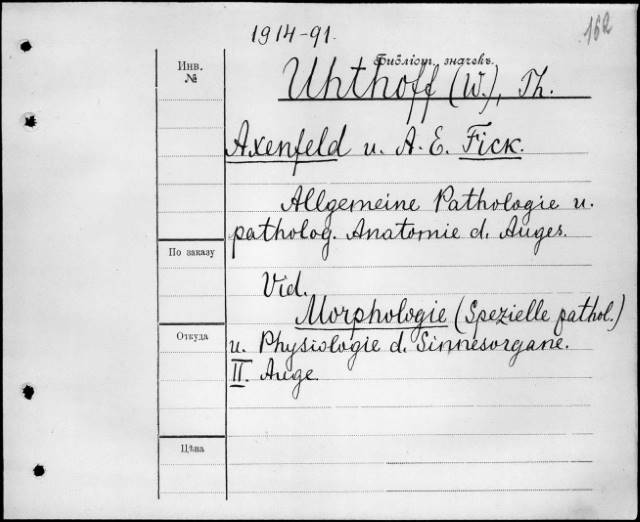 1914-91.
162
Инв.
№
Библіот. значекъ.
Uhthoff (W.), Th.
Axenfeld u. A. E. Fick.
Allgemeine Pathologie u.
patholog. Anatomie d. Auges.
По заказу
Vid.
Morphologie (Spezielle pathol.)
Откуда
u. Physiologie d. Sinnesorgane.
II. Auge.
Цѣна